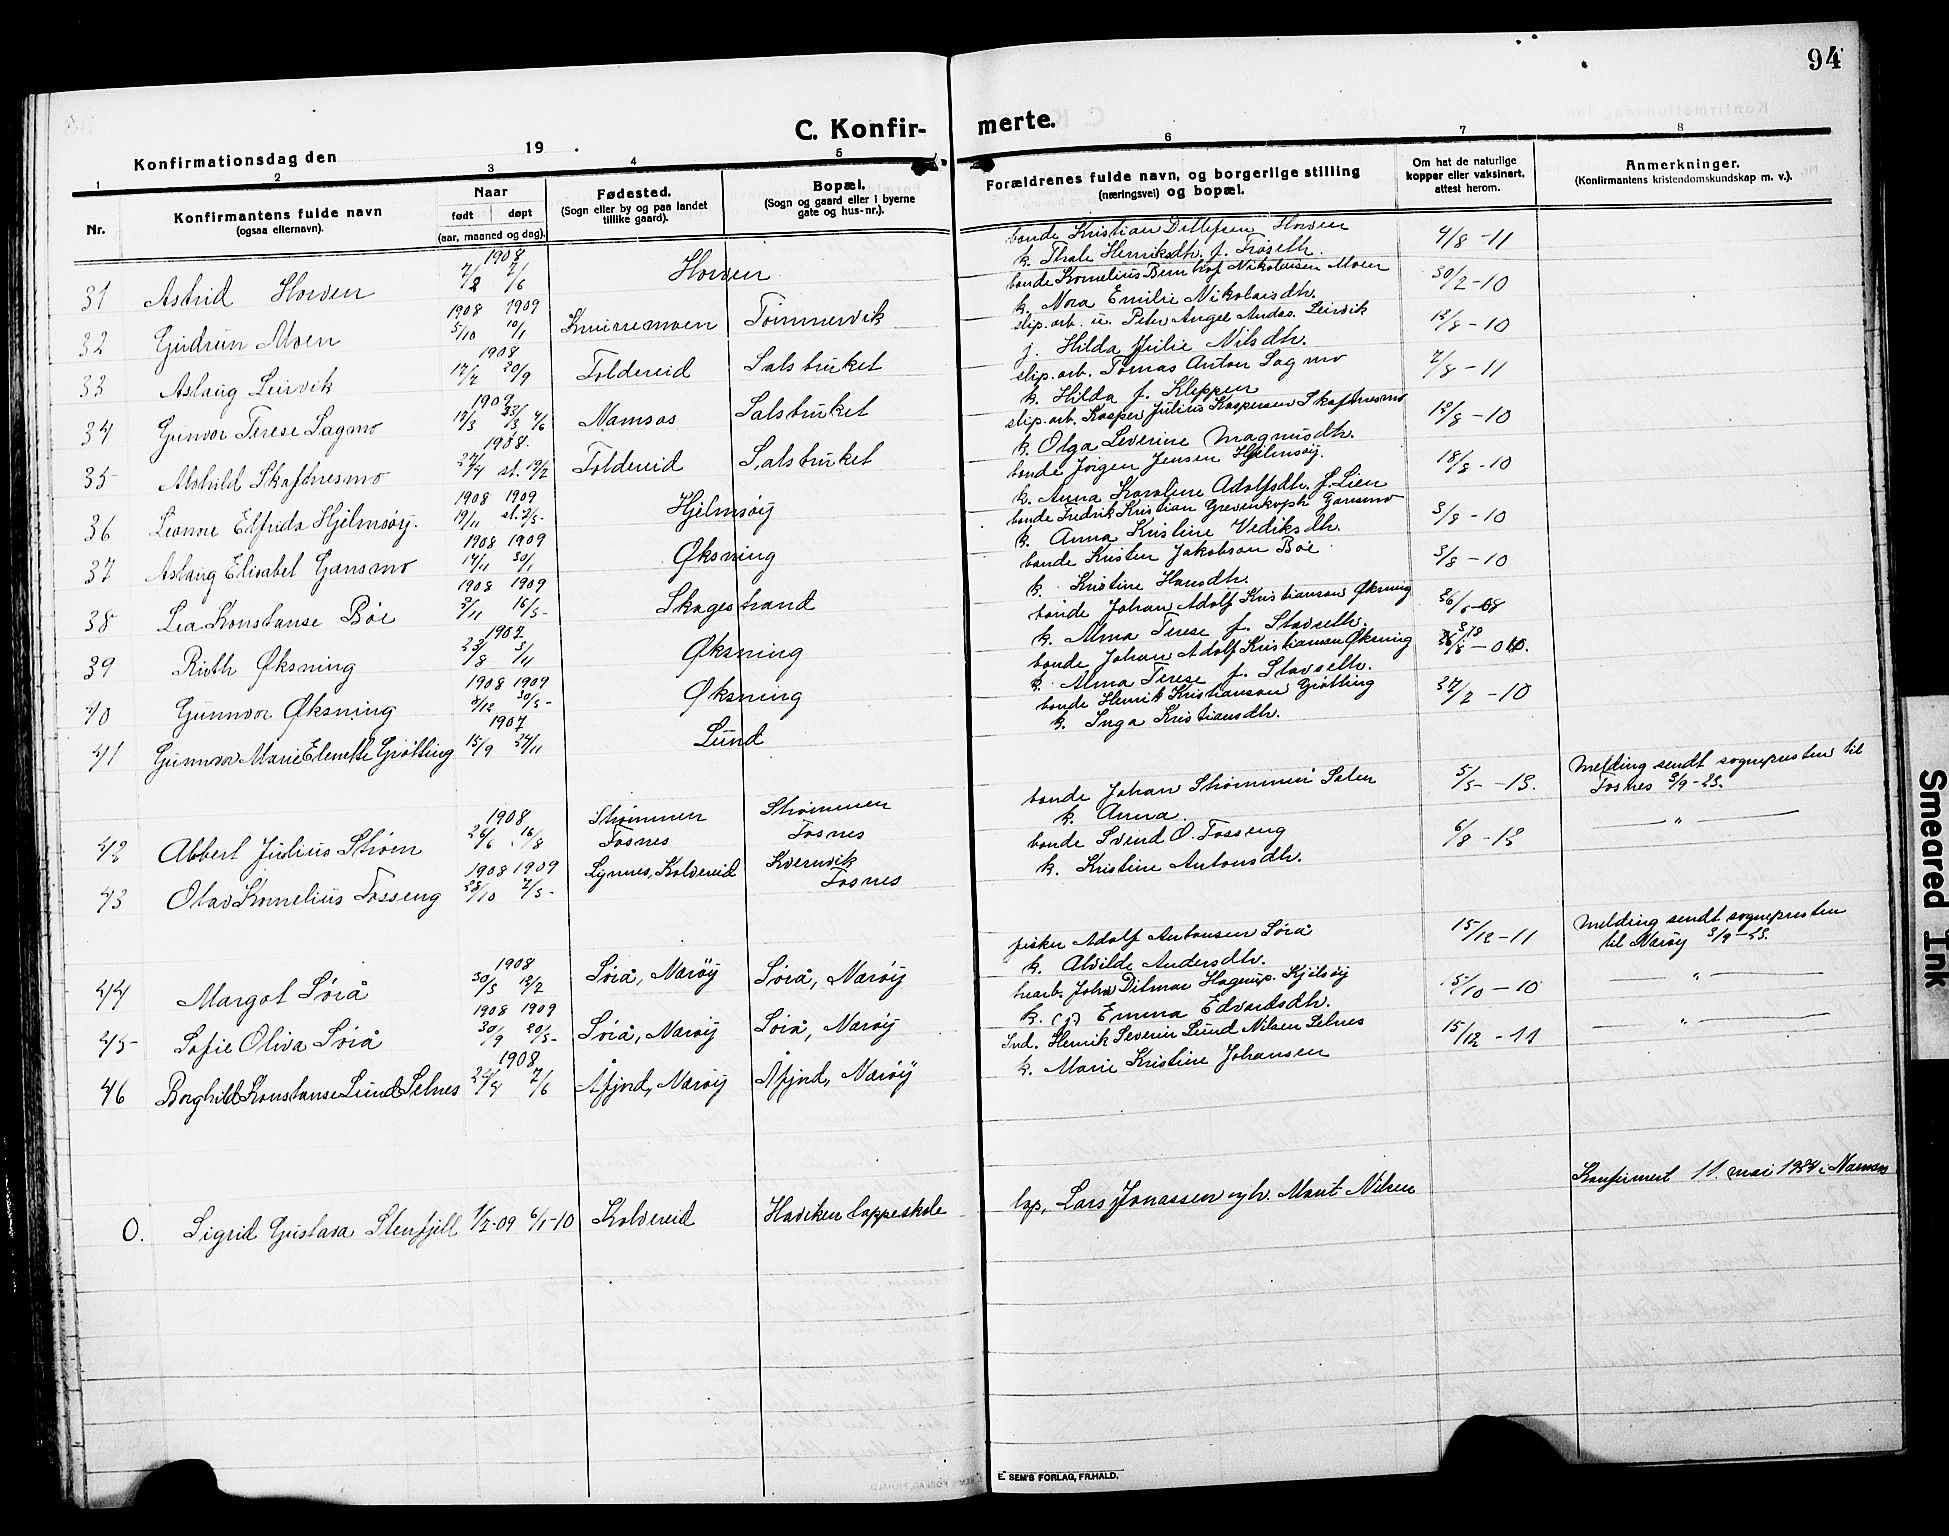 94
C. Konfir- merte.
Konfirmationsdag den 19 .
1 2 3 4 5 6 7 8
Nr.
Konfirmantens fulde navn
(ogsaa efternavn).
Naar
født døpt
(aar, maaned og dag).
Fødested.
(Sogn eller by og paa landet
tillike gaard).
Bopæl.
(Sogn og gaard eller i byerne
gate og hus-nr.).
Forældrenes fulde navn, og borgerlige stilling
(næringsvei) og bopæl.
Om hat de naturlige
kopper eller vaksinert,
attest herom.
Anmerkninger.
(Konfirmantens kristendomskundskap m. v.).
bonde Kristian Detlefsen Horven 4/8 - 11
1908
31 Astrid Horven 7/2 7/6 Horven k. Thale Henriksdtr. f. Frøseth.
bonde Kornelius Bernhof Nikolaisen Moen 30/2 - 10
1908 1909
32 Gudrun Moen 5/10 10/1 Tømmervik k. Nora Emilie Nikolaisdtr.
slip. arb. u. Peter Angel Andas. Leirvik 12/8 - 10
1908
33 Aslaug Leirvik 17/7 20/9 Foldereid Salsbruket j. Hilda Julie Nilsdtr.
slip. arb. Tomas Anton Sagmo 7/8 - 11
34 Gunvor Terese Sagmo Namsos Salsbruket k. Hilda f. Kleppen
slip. arb. Kasper Julius Kaspersen Skafthesmo 12/8 - 10
1908.
35 Alshild Skafthesmo 27/4 st. 19/7 Foldereid Salsbruket k. Olga Severine Magnusdtr.
bonde Jørgen Jensen Hjelmsøy. 18/8 - 10
1908 1909
36 Leonore Elfrida Hjelmsøy. 19/11 Hjelmsøy k. Anna Karoline Adolfsdtr. f. Lien
bonde Fredrik Kristian Grevenkoph Gansmo 3/8 - 10
1908 1909
37 Aslaug Elisabet Gansmo 14/11 30/1 Øksning k. Anna Kristine Vediksdtr.
bonde Kristen Jakobsen Bøe 3/8 - 10
1908 1909
38 Lea Konstanse Bøe 3/11 16/5- Skagestrand k. Kristine Hansdtr.
bonde Johan Adolf Kristiansen Øksning
1907
39 Ruth Øksning 23/8 3/11 Øksning k. Alma Terese f. Stavseth.
bonde Johan Adolf Kristiansen Øksning
1908 1909
40 Gunnvor Øksning 4/12 30/5- Øksning k. Alma Terese f. Stavseth.
bonde Henrik Kristiansen Grøtting 27/7 - 10
1907
41 Gunnvor Marie Elenette Grøtting 15/9 24/11 Lund k. Inga Kristiansdtr.
bonde Johan Strømmen Selen 5/5 - 13. Melding sendt sognepresten til
Fosnes 3/9 - 23.
1908
42 Albert Julius Strøm 26/6 16/8 Strømmen Fosnes Strømmen Fosnes k. Anna
bonde Svend O. Fosseng 6/8 - 13 — " —
1908 1909
43 Olav Kornelius Fosseng 28/10 7/5- Lynnes, Kolvereid Kvernvik Fosnes k. Kristine Antonsdtr.
fisker Adolf Antonsen Sørå 15/12 - 11 Melding sendt sognepresten
til Nærøy 3/9 - 23.
1908
44 Margot Sørå 30/5 12/7 Sørå, Nærøy Sørå, Nærøy k. Alvilde Andersdtr.
John Dilmar Hagerup Kjelsøy 15/10 - 10 — " —
1908 1909
45 Sofie Oliva Sørå 30/9 20/5- Sørå, Nærøy Sørå, Nærøy k. (j) Emma Edvardsdtr.
Ind. Henrik Severin Lund Nilsen Selnes 15/12 - 11 — " —
1908
46 Borghild Konstanse Lund Selnes 22/4 7/6 Åfjord, Nærøy Åfjord, Nærøy k. Marie Kristine Johansen
Konfirmert 11. mai 1924 i Namsos
0. Sigrid Gustava Stenfjell 1/2-09 6/1-10 Kolvereid Haviken lappeskole lap, Lars Jonassen og h. Marit Nilsen
E. SEM'S FORLAG, FR.HALD.
Smeared Ink